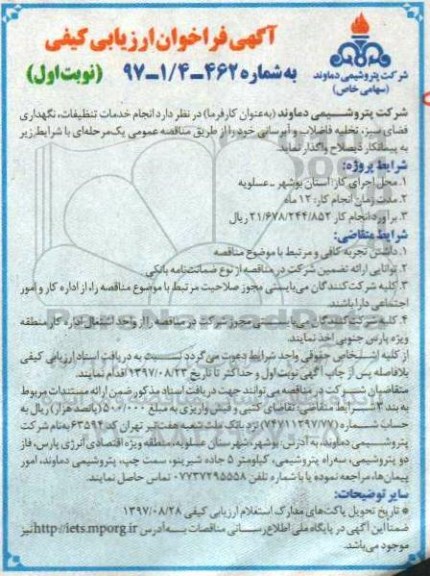 آگهی فراخوان ارزیابی کیفی
به شماره ۴۶۲-۱/۴-۹۷ (نوبت اول)
شرکت پتروشیمی دماوند
(سهامی خاص)
شرکت پتروشیمی دماوند (به‌عنوان کارفرما) در نظر دارد انجام خدمات تنظیفات، نگهداری
فضای سبز، تخلیه فاضلاب و آبرسانی خود را از طریق مناقصه عمومی یک مرحله‌ای با شرایط زیر
به پیمانکار ذیصلاح واگذار نماید.
شرایط پروژه:
۱. محل اجرای کار: استان بوشهر - عسلویه
۲. مدت زمان انجام کار: ۱۲ ماه
۳. برآورد انجام کار ۲۱/۶۷۸/۲۴۴/۸۵۲ ریال
شرایط متقاضی:
۱. داشتن تجربه کافی و مرتبط با موضوع مناقصه
۲. توانایی ارائه تضمین شرکت در مناقصه از نوع ضمانتنامه بانکی
۳. کلیه شرکت‌کنندگان می‌بایستی مجوز صلاحیت مرتبط با موضوع مناقصه را، از اداره کار و امور
اجتماعی دارا باشند.
۴. کلیه شرکت‌کنندگان می‌بایستی مجوز شرکت در مناقصه را از واحد اشتغال اداره کار منطقه
ویژه پارس جنوبی اخذ نمایند.
از کلیه اشخاص حقوقی واجد شرایط دعوت می‌گردد نسبت به دریافت اسناد ارزیابی کیفی
بلافاصله پس از چاپ آگهی نوبت اول و حداکثر تا تاریخ ۱۳۹۷/۰۸/۲۳ اقدام نمایند.
متقاضیان شرکت در مناقصه می‌توانند جهت دریافت اسناد مذکور ضمن ارائه مستندات مربوط
به بند ۴ شرایط متقاضی، تقاضای کتبی و فیش واریزی به مبلغ ۵۰۰/۰۰۰ (پانصد هزار) ریال به
حساب شماره (۷۴۷۱۱۲۹۷/۷۷) نزد بانک ملت شعبه هفت تیر تهران کد ۶۳۵۹۲ به نام شرکت
پتروشیمی دماوند، به آدرس: بوشهر، شهرستان عسلویه، منطقه ویژه اقتصادی انرژی پارس، فاز
دو پتروشیمی، سه‌راه پتروشیمی، کیلومتر ۵ جاده شیرینو، سمت چپ، پتروشیمی دماوند، امور
پیمان‌ها، مراجعه نموده یا با شماره تلفن ۰۷۷۳۷۲۹۵۵۵۸ تماس حاصل نمایند.
سایر توضیحات:
* تاریخ تحویل پاکت‌های مدارک استعلام ارزیابی کیفی ۱۳۹۷/۰۸/۲۸
ضمناً این آگهی در پایگاه ملی اطلاع‌رسانی مناقصات به آدرس http://iets.mporg.ir نیز
موجود می‌باشد.